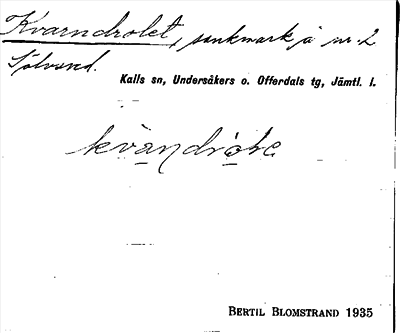 Kvarndrolet, sankmark å nr 2
Sölvsnd.
Kalls sn, Undersåkers o. Offerdals tg, Jämtl. l.
BERTIL BLOMSTRAND 1935